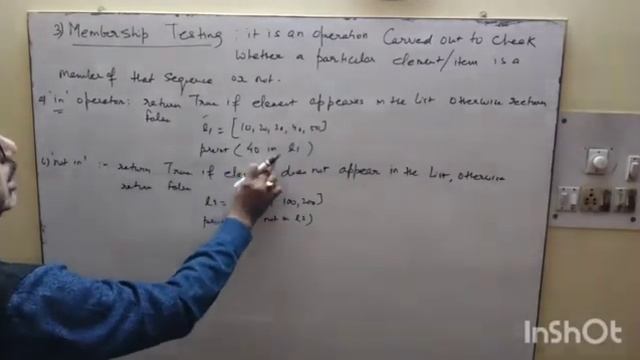 3) Membership Testing : it is an operation Carved out to check
whether a particular element/item is a
member of that sequence or not.
a) 'in' operator: return True if element appears in the list otherwise return
false
l1 = [10, 20, 30, 40, 50]
print ( 40 in l1 )
b) 'not in' :- return True if does not appear in the list, otherwise
return false
l2 = 100, 200]
not in l2)
InShot